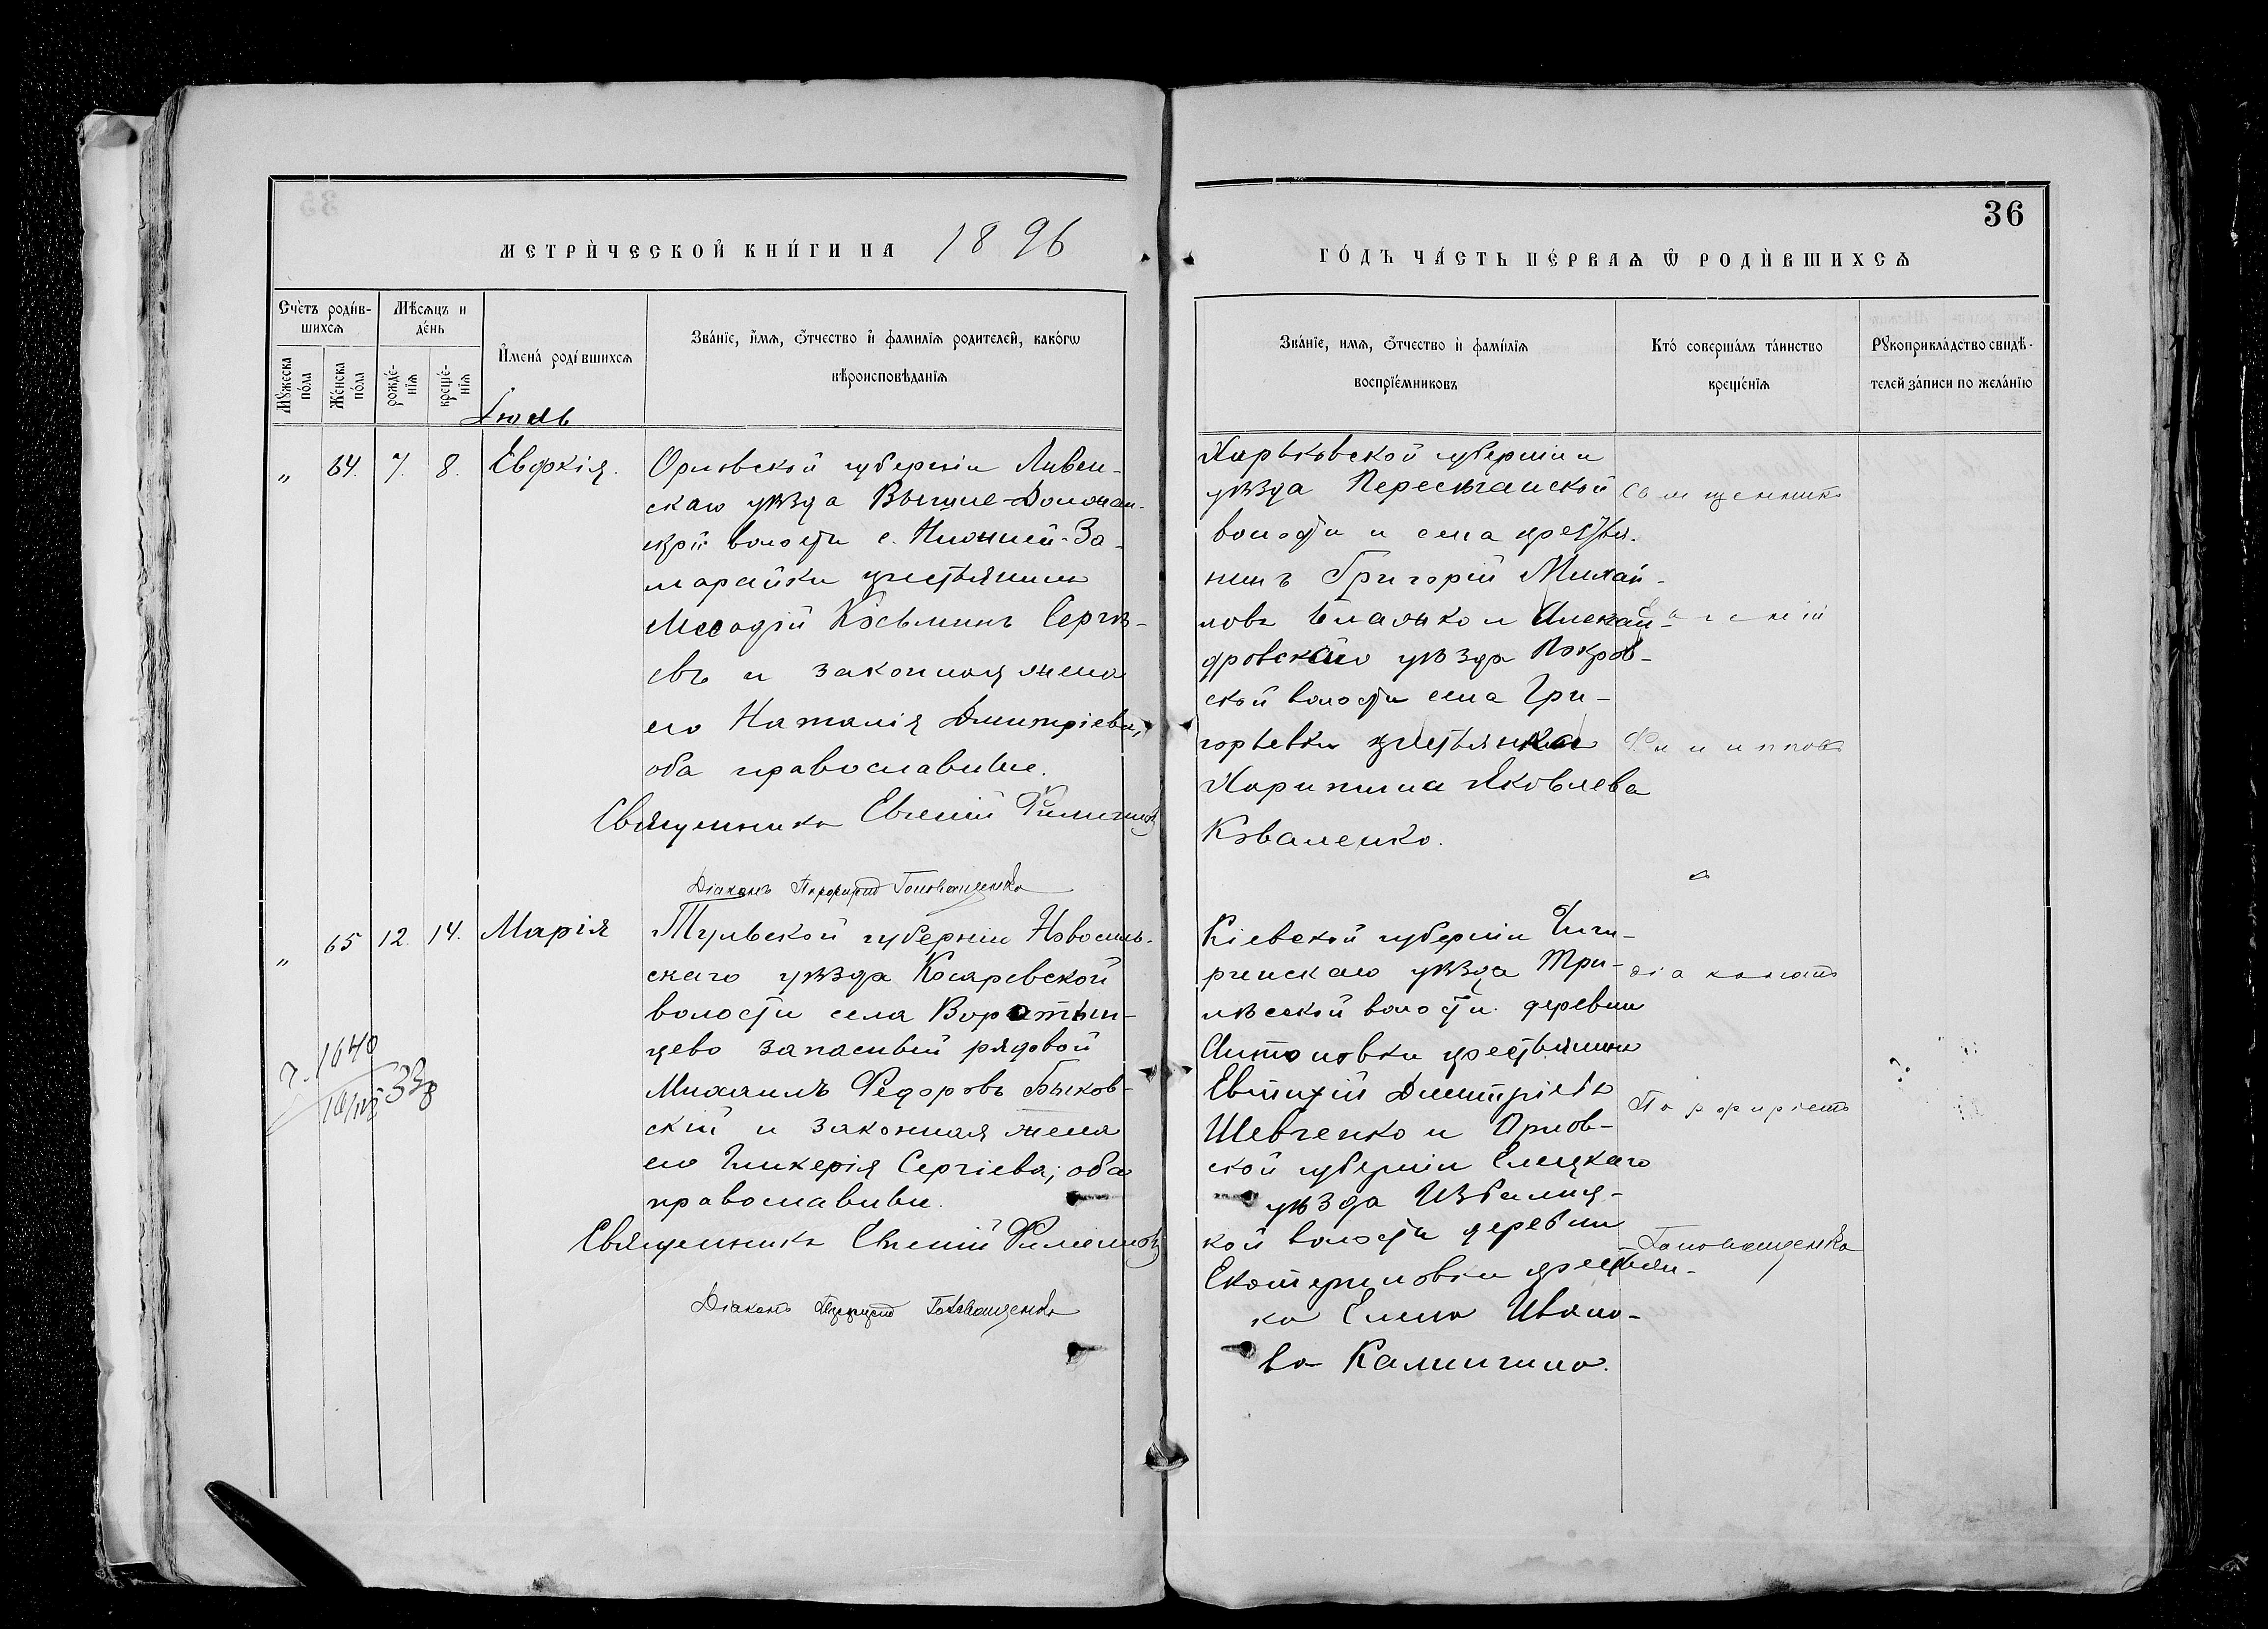 36
МЕТРИЧЕСКОЙ КНИГИ НА 1896
ГОДЪ ЧАСТЬ ПЕРВАЯ Ѡ РОДИВШИХСЯ
Счетъ родив-
шихся
Мѣсяцъ и
день
Имена родившихся
Званіе, имя, ѿчество и фамилія родителей, какогѡ
вѣроисповѣданія
Мꙋжеска
пола
Женска
пола
рожде-
нія
креще-
нія
Званіе, имя, ѿчество и фамилія
воспріемниковъ
Кто совершалъ таинство
крещенія
Рꙋкоприкладство свидѣ-
телей записи по желанію
Іюль
„ 64. 7. 8. Евдокія.
Орловской губерніи Ливен-
скаго уѣзда Вышне-Должан-
ской волости с. Нижней-За-
морайки крестьянинъ
Меѳодій Косьминъ Сергѣ-
евъ и законная жена
его Наталія Димитріева,
оба православные.
Священникъ Евгеній Филипповъ
Діаконъ Порфирій Головащенко
Харьковской губерніи и
уѣзда Пересѣчанской
волости и села крестья-
нинъ Григорій Михай-
ловъ и Алексан-
дровскаго уѣзда Покров-
ской волости села Гри-
горьевки крестьянка
Харитина Яковлева
Коваленко.
Священникъ
Евгеній
Филипповъ
„ 65 12. 14. Марія
Тульской губерніи Новосиль-
скаго уѣзда Косаревской
волости села Воротын-
цево запасный рядовой
Михаилъ Федоровъ Быков-
скій и законная жена
его Гликерія Сергіева; оба
православные.
Священникъ Евгеній Филипповъ
Діаконъ Порфирій Головащенко
1640
338
Кіевской губерніи Чиги-
ринскаго уѣзда Три-
лѣсской волости деревни
Антоновки крестьянинъ
Евтихій Димитріевъ
Шевченко и Орлов-
ской губерніи Елецкаго
уѣзда Избалец-
кой волости деревни
Екатериновки крестьян-
ка Елена Ивано-
ва Калинина.
діаконъ
Порфирій
Головащенко